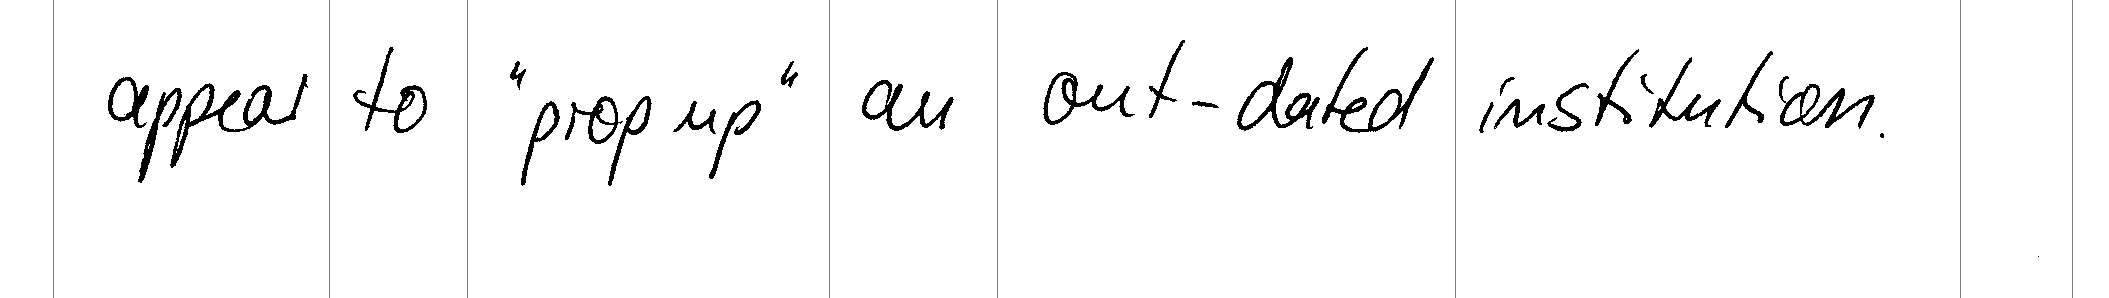 appear to "prop up" an out-dated institution.